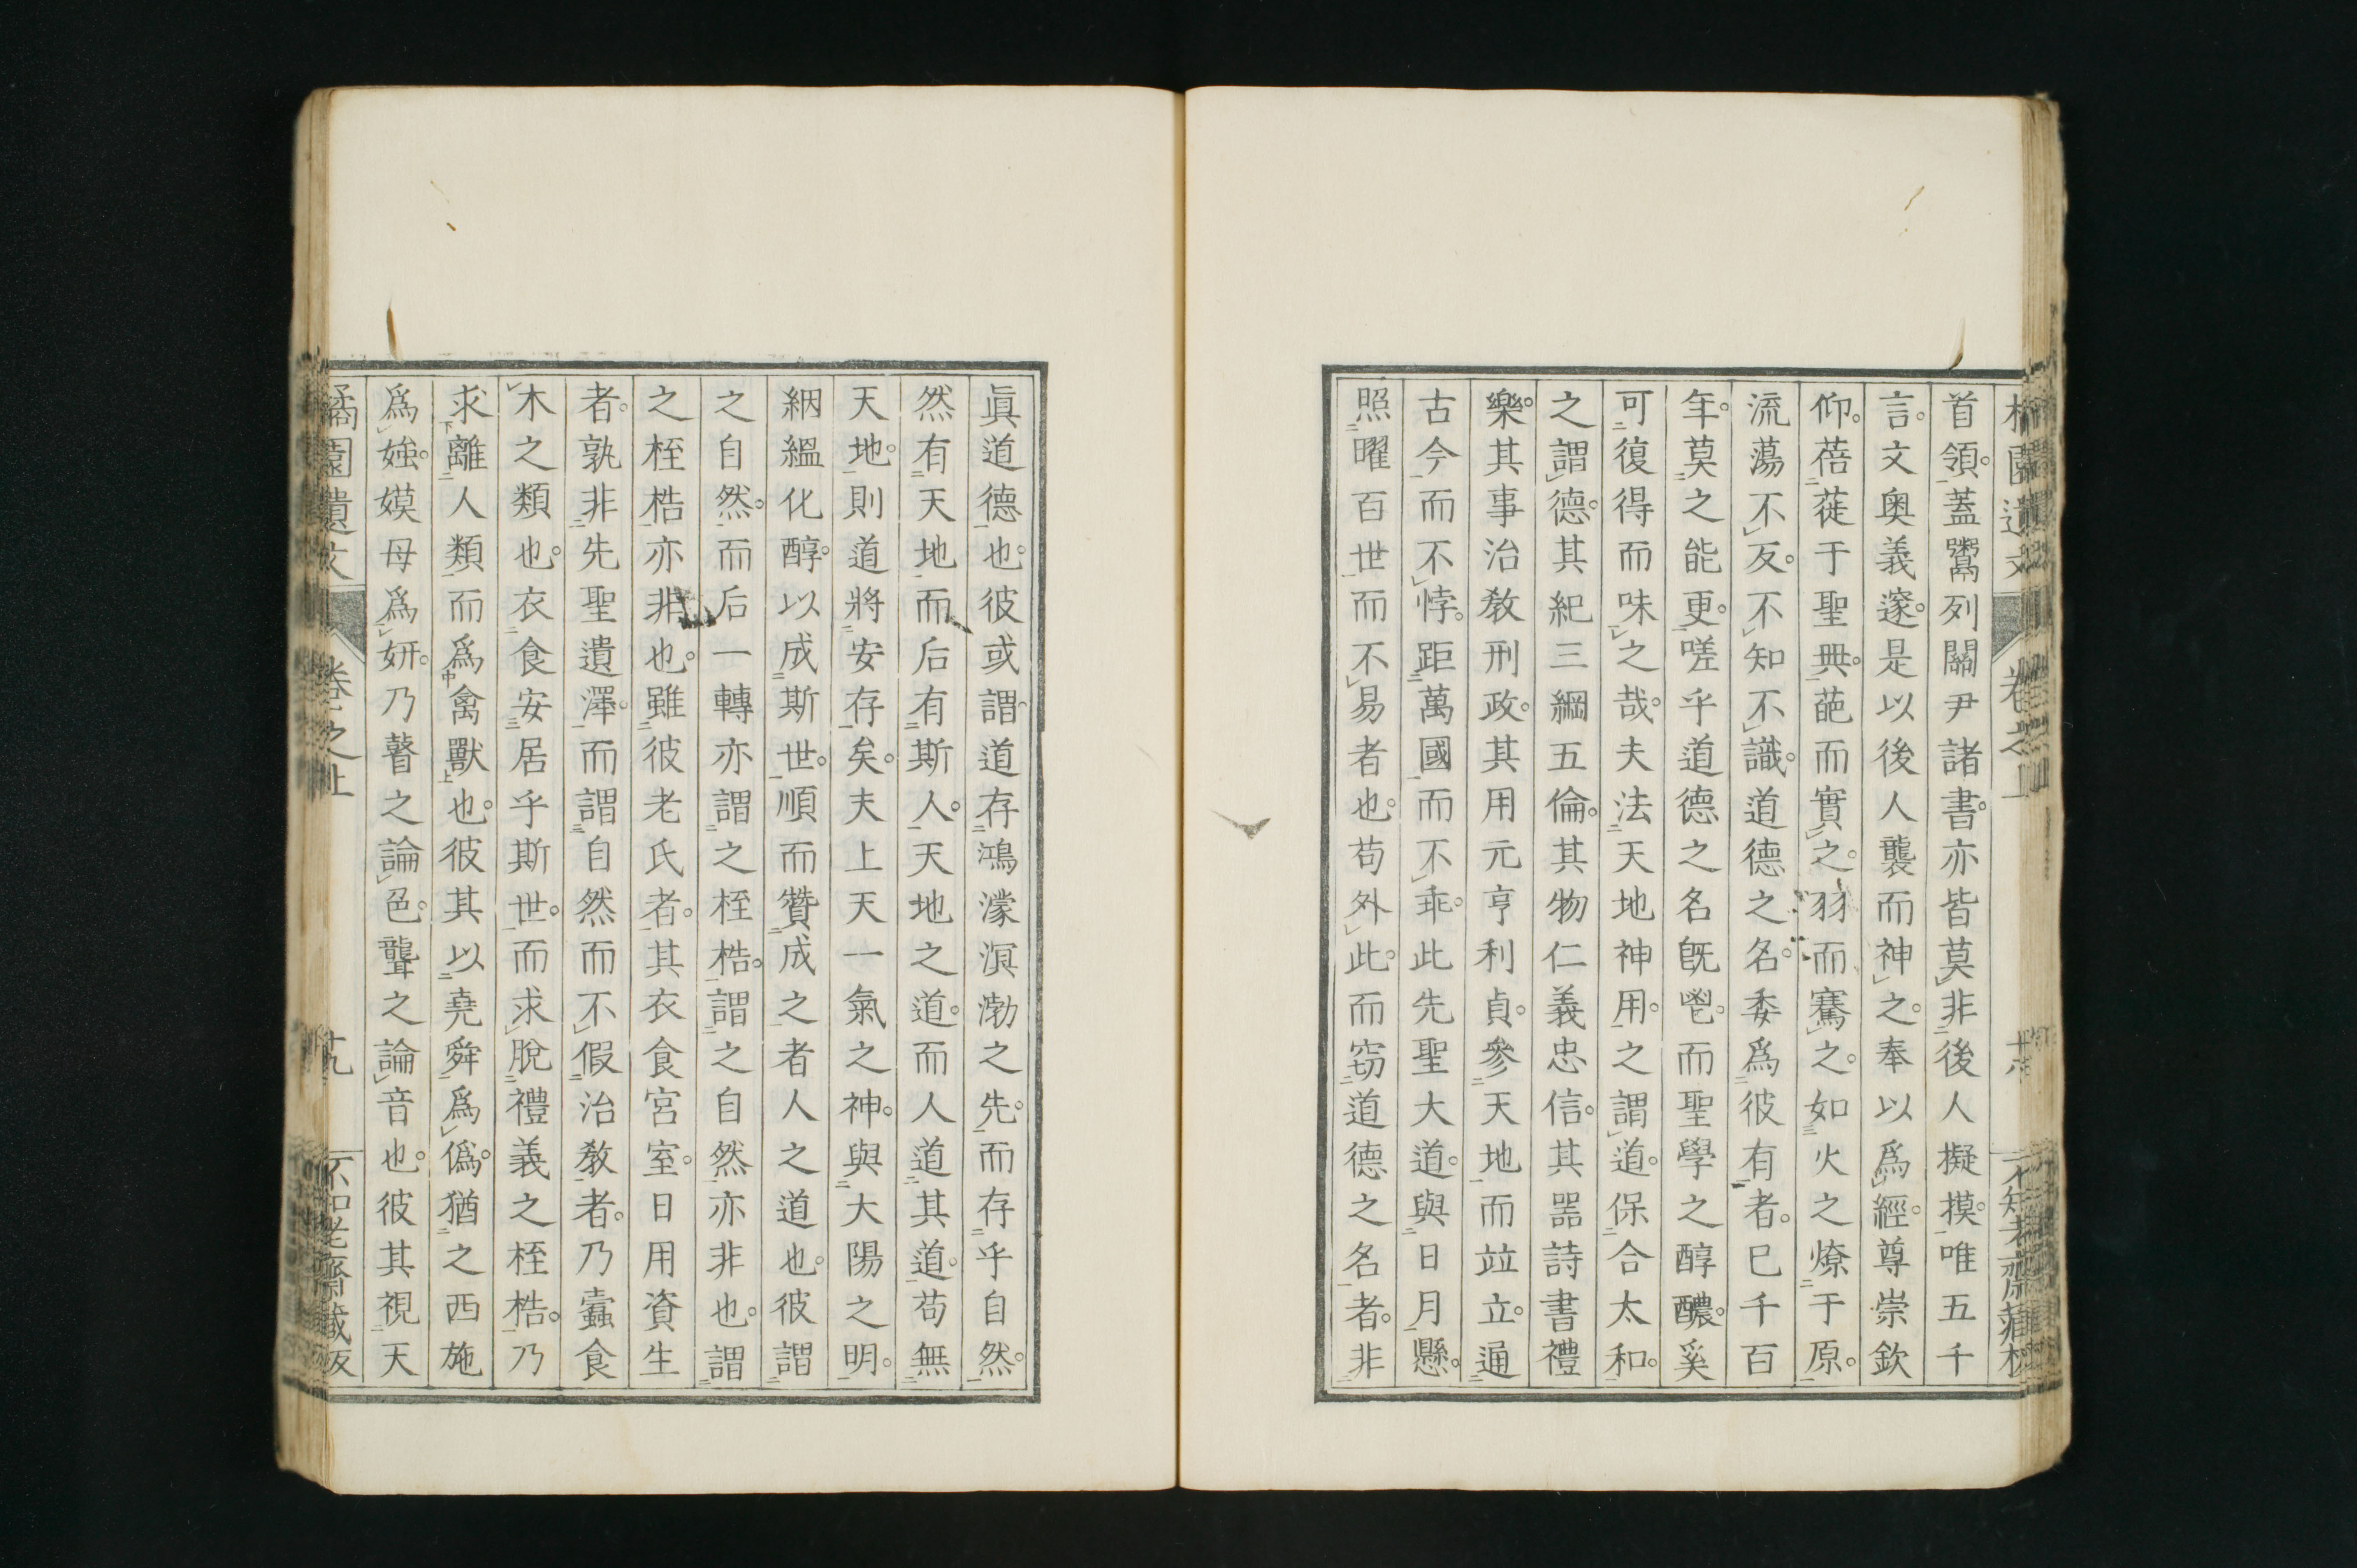 首領。蓋鬻列關尹諸書。亦皆莫非後人擬摸。唯五千
言。文奧義邃。是以後人襲而神之。奉以爲經。尊崇欽
仰。蓓蓰于聖典。葩而實之。羽而騫之。如火之燎于原。
流蕩不反。不知不識。道德之名。委爲彼有者。已千百
年。莫之能更。嗟乎道德之名既鬯。而聖學之醇醲。奚
可復得而味之哉。夫法天地神用。之謂道。保合太和。
之謂德。其紀三綱五倫。其物仁義忠信。其器詩書禮
樂。其事治教刑政。其用元亨利貞。參天地而竝立。通
古今而不悖。距萬國而不乖。此先聖大道。與日月懸。
照曜百世而不易者也。苟外此。而窃道德之名者。非
眞道德也。彼或謂道存鴻濛溟渤之先。而存乎自然。
然有天地而后有斯人。天地之道。而人道其道。苟無
天地。則道將安存矣。夫上天一氣之神。與大陽之明。
絪縕化醇。以成斯世。順而贊成之者人之道也。彼謂
之自然。而后一轉亦謂之桎梏。謂之自然亦非也。謂
之桎梏亦非也。雖彼老氏者。其衣食宮室。日用資生
者。孰非先聖遺澤。而謂自然而不假治教者。乃蠹食
木之類也。衣食安居乎斯世。而求脫禮義之桎梏。乃
求離人類而爲禽獸也。彼其以堯舜爲僞。猶之西施
爲媸。嫫母爲妍。乃瞽之論色。聾之論音也。彼其視天
橘園遺文 卷之上 十九 不知老齋藏板